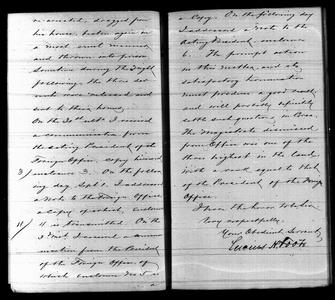 re-arrested, dragged from
his house, beaten again in
a most cruel manner
and thrown into prison.
Sometime during the night
following, the three ser-
vants were released and
sent to their homes.
On the 30th ulto. I received
a communication from
the acting President of the
Foreign Office, copy himd
3/ enclosure 3. On the follow-
ing day, Sept 1. I addressed
a Note to the Foreign Office
a Copy of which, enclosure
4/ is transmitted. On the
3 Inst I received a commu-
nication from the President
of the Foreign Office of
which enclosure No 5 is
a
a Copy. On the following day
I addressed a Note to the
Acting President, enclosure
6. The prompt action
in this matter, and its
satisfactory termination
must produce a good result,
and will probably definitely
settle such questions, in Corea.
The Magistrate dismissed
from Office was one of the
three highest in the land,
with a rank equal to that
of the President of the Foreign
Office.
I have the honor to be Sir
Very respectfully,
Your Obedient Servant,
Lucius H. Foote